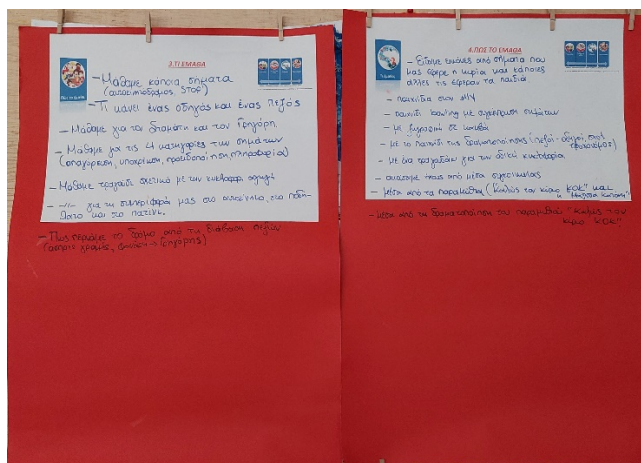 3. ΤΙ ΕΜΑΘΑ
- Μάθαμε κάποια σήματα
(αυτοκινητόδρομος, STOP)
- Τι κάνει ένας οδηγός και ένας πεζός
- Μάθαμε για το Σταμάτη και τον Γρηγόρη
- Μάθαμε για τις 4 κατηγορίες των σημάτων
(απαγόρευση, υποχρέωση, προειδοποίηση, πληροφορία)
- Μάθαμε τραγούδι σχετικό με την κυκλοφορ. αγωγή
-//- για τη συμπεριφορά μας στο αυτοκίνητο, στο ποδή-
λατο και το πατίνι.
- Πως περνάμε το δρόμο από τη διάβαση πεζών
4. ΠΩΣ ΤΟ ΕΜΑΘΑ
- Είδαμε εικόνες από σήματα που
μας έφερε η κυρία και κάποιες
άλλες τις έφεραν τα παιδιά
- παιχνίδια στον Η/Υ
- παιχνίδι bowling με αναγνώριση σημάτων
- με ζωγραφική σε
- με το παιχνίδι της δραματοποίησης (πεζοί - οδηγοί, στοπ
- με ένα τραγουδάκι για την οδική κυκλοφορία
από μέσα συγκοινωνίας
- μέσα από τα παραμύθια ("Καλώς τον κύριο ΚΟΚ" και
- μέσα από τη δραματοποίηση του παραμυθιού "Καλώς τον
κύριο ΚΟΚ"